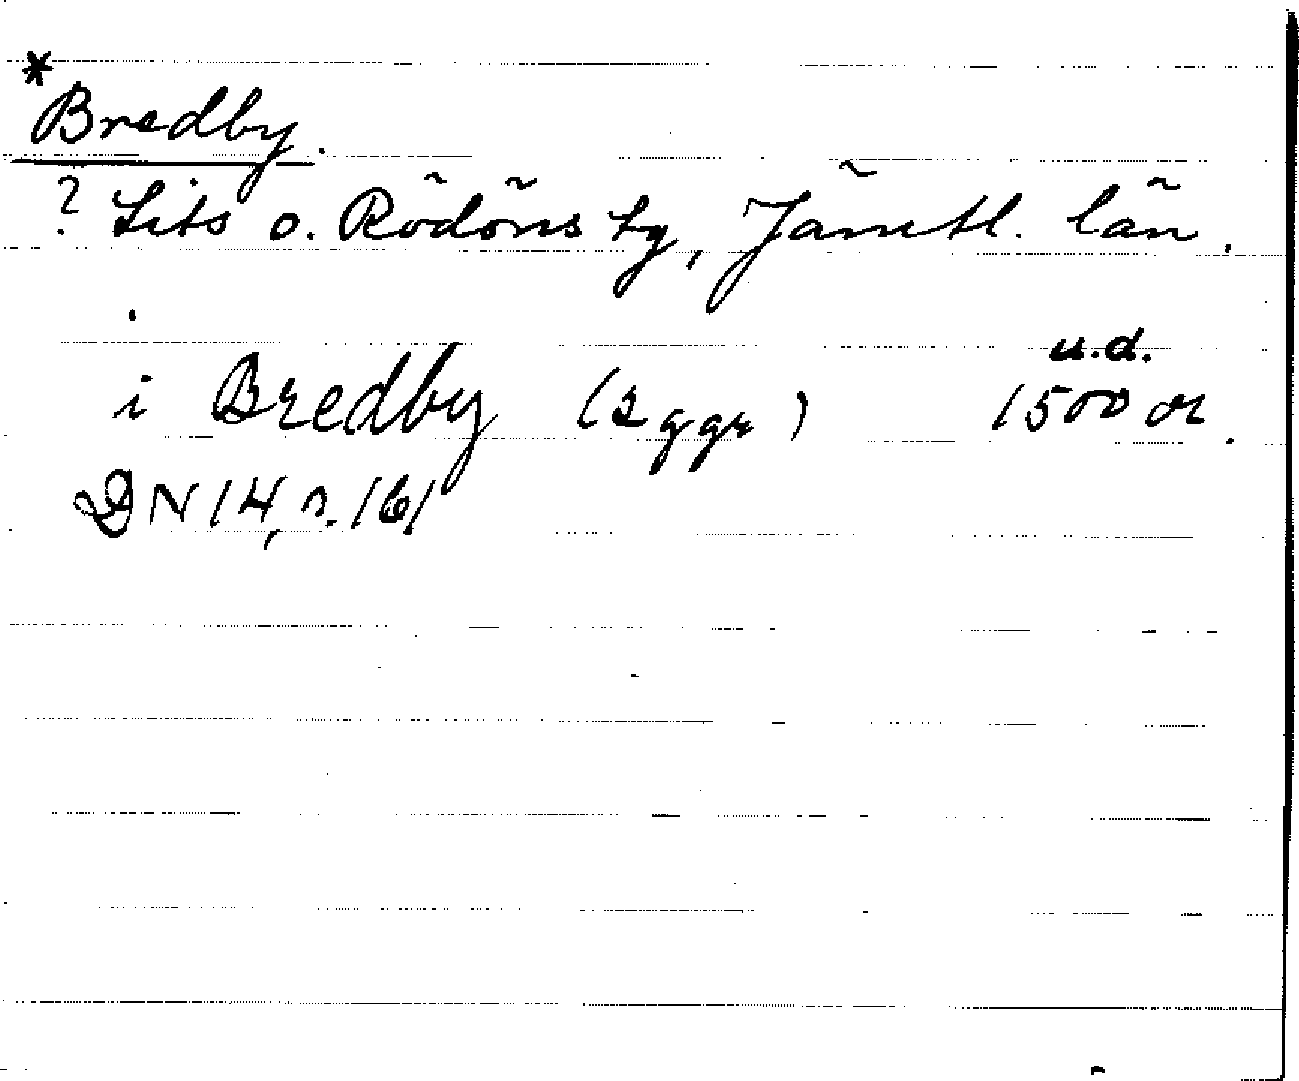 * Bredby.
? Lits o. Rödöns tg, Jämtl. län.
u.d.
i Bredby (2 ggr) 1500
DN 14, n. 161